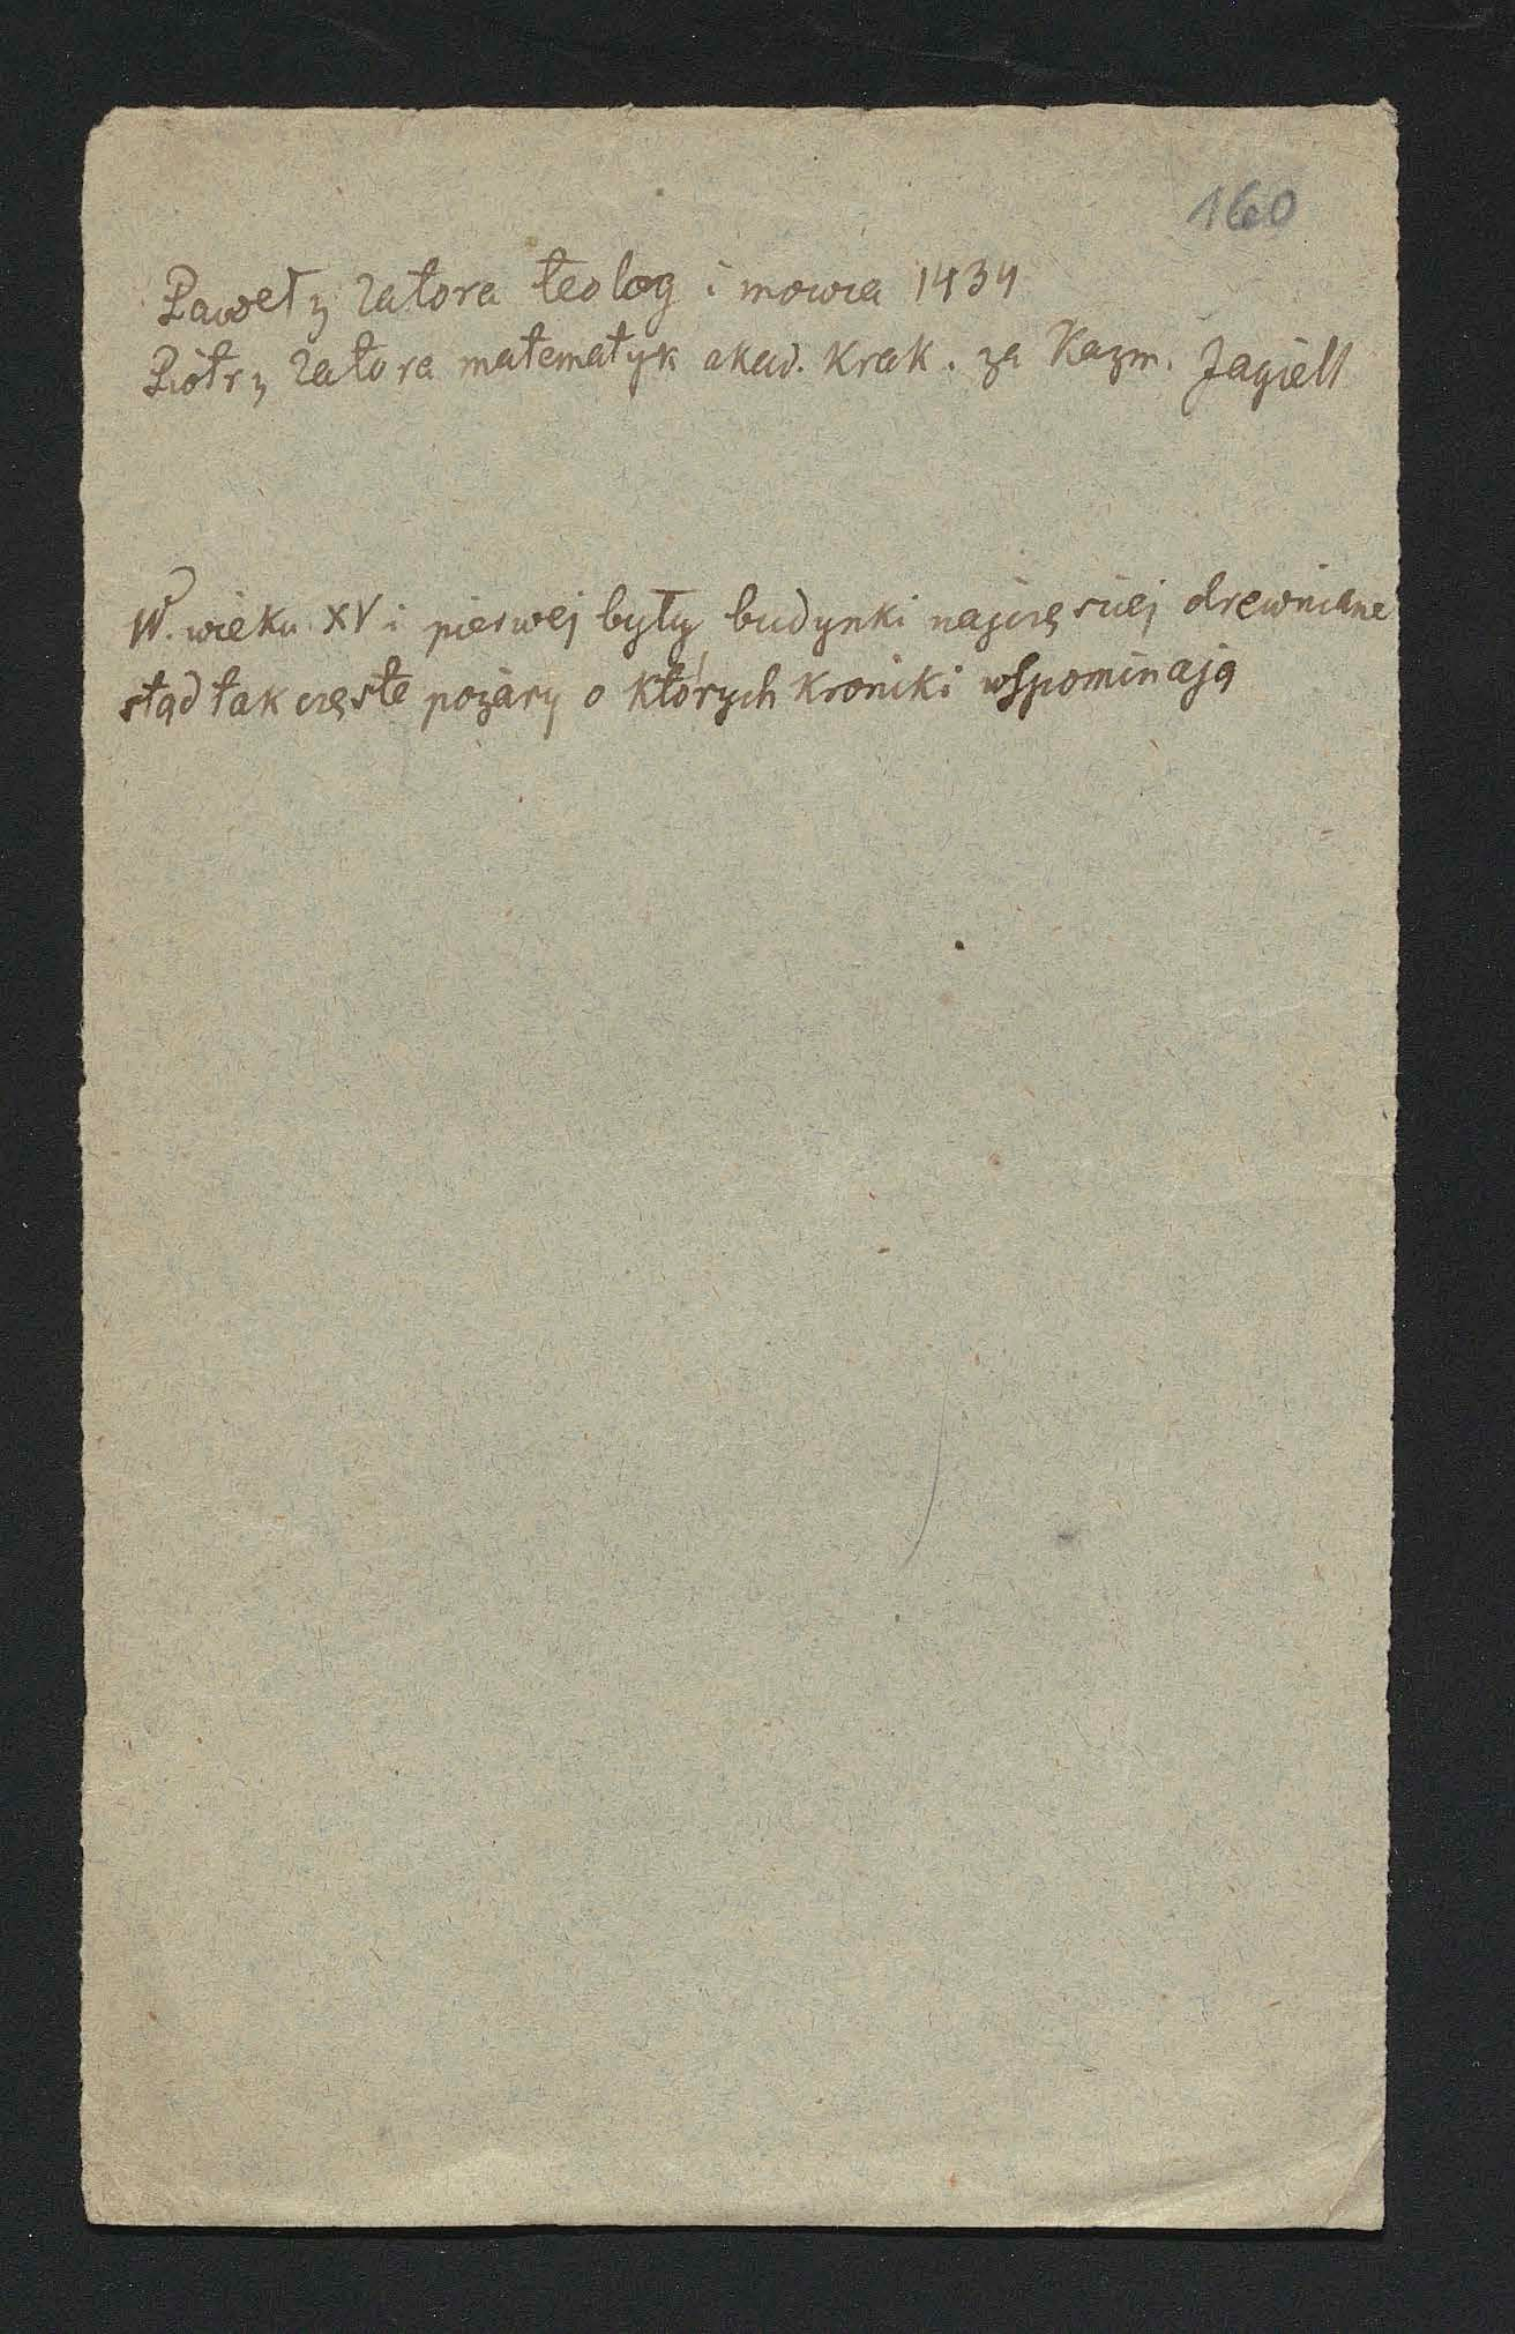 160
Paweł z Zatora teolog i mowca 1434
Piotr z Zatora matematyk akad. Krak. za Kazm. Jagiell
W. wieku XV i pierwej były budynki najczęściej drewniane
stąd tak częste pożary o których kroniki wspominają